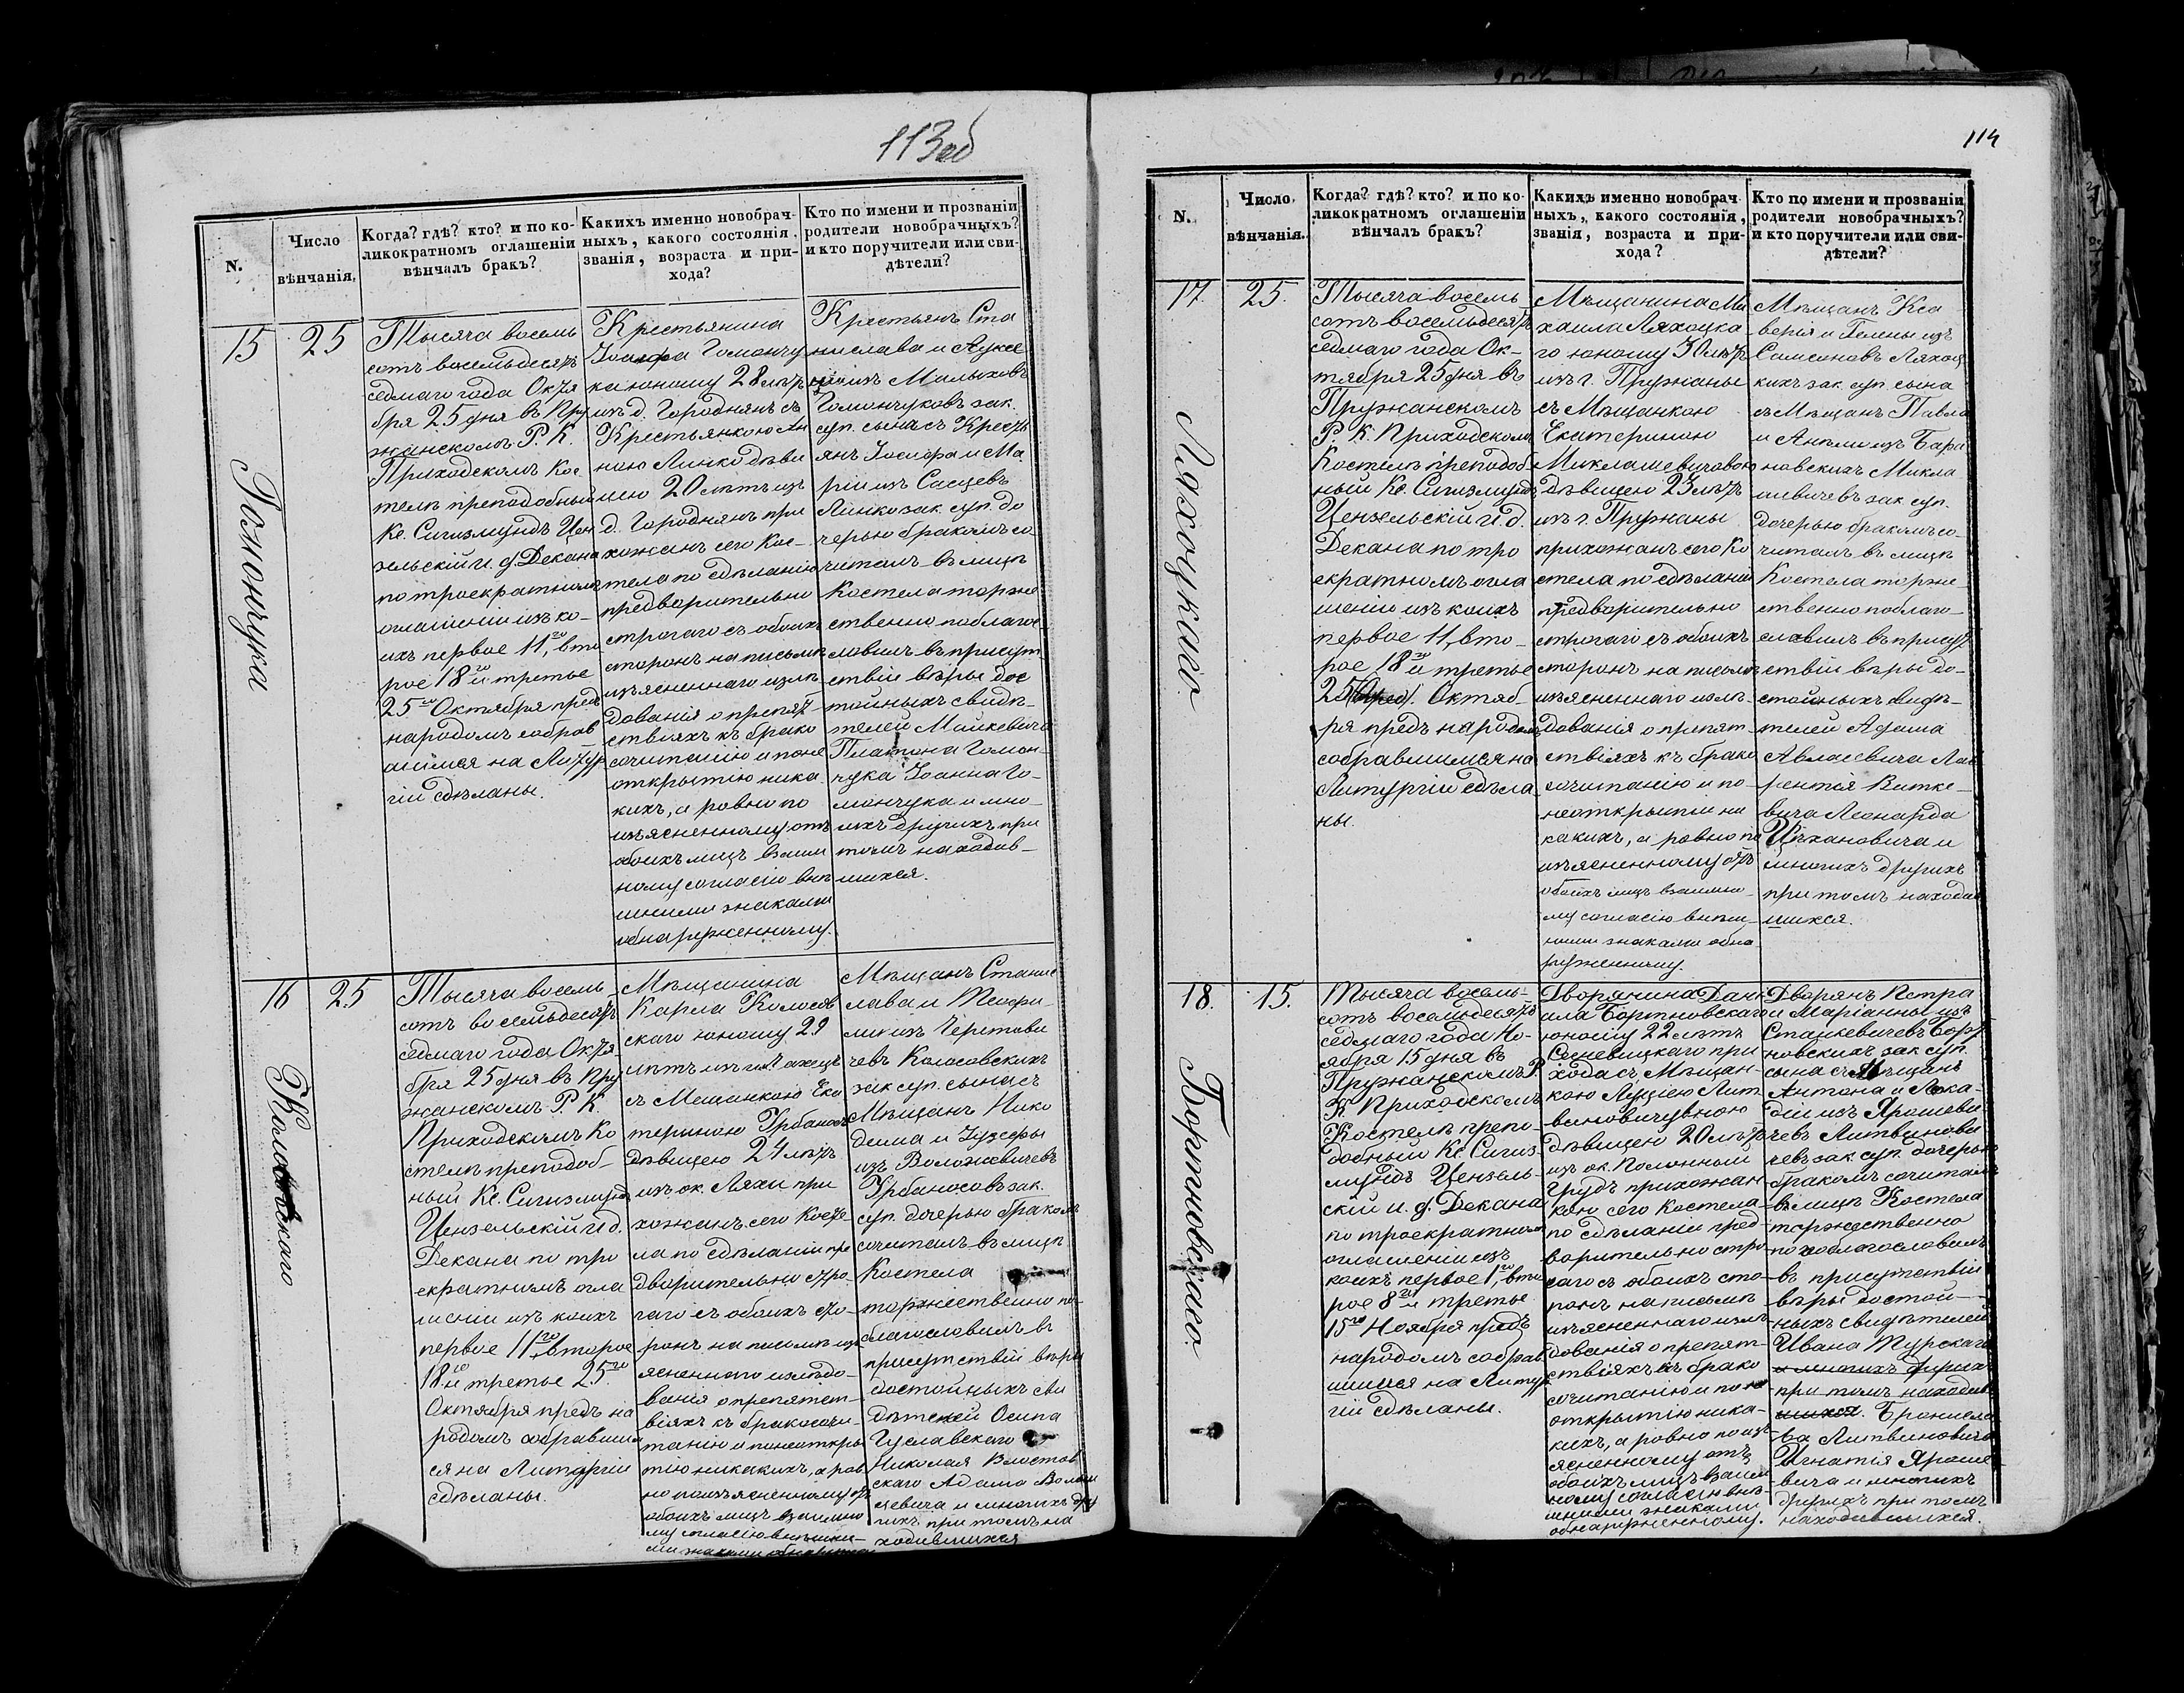 113 об
N.
Число
вѣнчанія.
Когда? гдѣ? кто? и по ко-
ликократномъ оглашеніи
вѣнчалъ бракъ?
Какихъ именно новобрач-
ныхъ, какого состоянія,
званія, возраста и при-
хода?
Кто по имени и прозванію
родители новобрачныхъ?
и кто поручители или сви-
дѣтели?
15
25
Гомончука
Тысяча восемь
сотъ восемьдесятъ
седмаго года Октя
бря 25 дня въ Пру
жанскомъ Р. К.
Приходскомъ Кос
телѣ преподобный
Кс. Сигизмундъ Цен
зельскій и. д. Декана
по троекратномъ
оглашеніи изъ ко-
ихъ первое 11го, вто
рое 18го и третье
25го Октября предъ
народомъ собрав
шимся на Литур
гіи сдѣланы.
Крестьянина
Іосифа Гомончу
ка юношу 28 лѣтъ
изъ д. Городнянъ съ
Крестьянкою Ан
ною Линко дѣви
цею 20 лѣтъ изъ
д. Городнянъ при
хожанъ сего Кос-
тела по сдѣланію
предворительно
строгаго съ обоихъ
сторонъ на письмѣ
изъясненнаго изслѣ
дованія о препят-
ствіяхъ къ брако
сочитанію и поне
открытію ника
кихъ, а ровно по
изъясненному отъ
обоихъ лицъ взаим
ному согласію внѣ
шними знаками
обнаруженному.
Крестьянъ Ста
нислава и
изъ Малыховъ
Гомончуковъ зак.
суп. сына съ Кресть
янъ Іосифа и Ма
ріи изъ Сасцевъ
Линко зак. суп. до
черью бракомъ со-
читалъ въ лицѣ
Костела торже
ственно поблагос-
ловилъ въ присут-
ствіи вѣры дос
тойныхъ свидѣ-
телей Мацкевича
Платона Гомон-
чука Іоанна Го-
мончука и мно-
гихъ другихъ при
томъ находив-
шихся.
16
25
Колосовскаго
Тысяча восемь
сотъ восемьдесятъ
седмаго года Октя-
бря 25 дня въ Пру
жанскомъ Р. К.
Приходскомъ Ко
стелѣ преподоб-
ный Кс. Сигизмундъ
Цензельскій и д.
Декана по тро
екратномъ огла
шеніи изъ коихъ
первое 11го, второе
18го и третье 25го
Октября предъ на
родомъ собравшим
ся на Литургіи
сдѣланы.
Мѣщанина
Карла Колосов
скаго юношу 29
лѣтъ изъ
съ Мещанкою Ека
териною Урбановъ
дѣвицею 24 лѣтъ
изъ ок. Ляхи при
хожанъ сего Косте
ла по сдѣланіи пре
дворительно стро-
гаго съ обоихъ сто-
ронъ на письмѣ изъ
ясненнаго изслѣдо-
ванія о препятст-
віяхъ къ бракосочи-
танію и понеоткры
тію никакихъ, а ров
но поизъясненному отъ
обоихъ лицъ взаимно
му согласію внѣшни-
ми знаками
Мѣщанъ Станис
лава и Теофи
ли изъ
чевъ Колосовскихъ
зак суп. сына съ
Мѣщанъ Нико
дима и Іузефы
изъ Воложевичевъ
Урбаносовъ зак.
суп. дочерью бракомъ
сочиталъ въ лицѣ
Костела
торжественно по-
благословилъ въ
присутствіи вѣры
достойныхъ сви
дѣтелей Осипа
Гуславскаго
Николая Властов
скаго Адама
и многихъ дру
гихъ при томъ на
ходившихся
114
N.
Число
вѣнчанія.
Когда? гдѣ? кто? и по ко-
ликократномъ оглашеніи
вѣнчалъ бракъ?
Какихъ именно новобрач-
ныхъ, какого состоянія,
званія, возраста и при-
хода?
Кто по имени и прозванію
родители новобрачныхъ?
и кто поручители или сви-
дѣтели?
17.
25.
Ляхоцкаго.
Тысяча восемь
сотъ восемьдесятъ
седмаго года Ок-
тября 25 дня въ
Пружанскомъ
Р. К. Приходскомъ
Костелѣ преподоб-
ный Кс. Сигизмундъ
Цензельскій и. д.
Декана по тро
екратномъ огла
шеніи изъ коихъ
первое 11, вто-
рое 18го и третье
25 Октяб-
ря предъ народомъ
собравшимся на
Литургіи сдѣла
ны.
Мѣщанина Ми
хаила Ляхоцка
го юношу 30 лѣтъ
изъ г. Пружаны
съ Мѣщанкою
Екатериною
Миклашевичовою
дѣвицею 23 лѣтъ
изъ г. Пружаны
прихожанъ сего Ко
стела по сдѣланіи
предворительно
строгаго съ обоихъ
сторонъ на письмѣ
изъясненнаго изслѣ-
дованія о препят-
ствіяхъ къ брако
сочитанію и по-
неоткрытію ни
какихъ, а ровно по
изъясненному отъ
обоихъ лицъ взаимно-
му согласію внѣш-
ними знаками обна
руженному.
Мѣщанъ Кса
верія и Гелены изъ
Самсоновъ Ляхоц
кихъ зак. суп. сына
съ Мѣщанъ Павла
и Анели изъ Бара
новскихъ Микла
шевичевъ зак суп.
дочерью бракомъ со-
читалъ въ лицѣ
Костела торже-
ственно поблаго-
словилъ въ присут
ствіи вѣры до-
стойныхъ свидѣ-
телей Адама
Авласевича Лав
рентія Витке-
вича Леонарда
Цѣхановича и
многихъ другихъ
при томъ находив
шихся.
18.
15.
Бортновскаго.
Тысяча восемь-
сотъ восемьдесятъ
седмаго года Но-
ября 15 дня въ
Пружанскомъ Р.
К. Приходскомъ
Костелѣ препо-
добный Кс. Сигиз-
мундъ Цензель-
скій и. д. Декана
по троекратномъ
оглашеніи изъ
коихъ первое 1го, вто
рое 8го и третье
15го Ноября предъ
народомъ собрав
шимся на Литур
гіи сдѣланы.
Дворянина Дани-
ила Бортновскаго
юношу 22 лѣтъ
Сехневицкаго при
хода съ Мѣщан-
кою Луціею Лит
виновичувною
дѣвицею 20 лѣтъ
изъ ок. Полонный
Грудъ прихожан
кою сего Костела
по сдѣланіи пред-
ворительно стро
гаго съ обоихъ сто-
ронъ на письмѣ
изъясненнаго изслѣ
дованія о препят-
ствіяхъ къ брако
сочитанію и поне
открытію ника-
кихъ, а ровно поизъ-
ясненному отъ
обоихъ лицъ взаим
ному согласію внѣ-
шними знаками
обнаруженному.
Дворянъ Петра
и Маріанны изъ
Станкевичевъ Борт-
новскихъ зак суп.
сына съ Мѣщанъ
Антона и Лека-
діи изъ Ярошеви
чевъ Литвинови
чевъ зак. суп. дочерью
бракомъ сочиталъ
въ лицѣ Костела
торжественно
поблагословилъ
въ присутствіи
вѣры достой-
ныхъ свидѣтелей
Ивана Турскаго
и многихъ другихъ
при томъ находив
шихся. Бронисла
ва Литвиновича
Игнатія Яроше-
вича и многихъ
другихъ при томъ
находившихся.